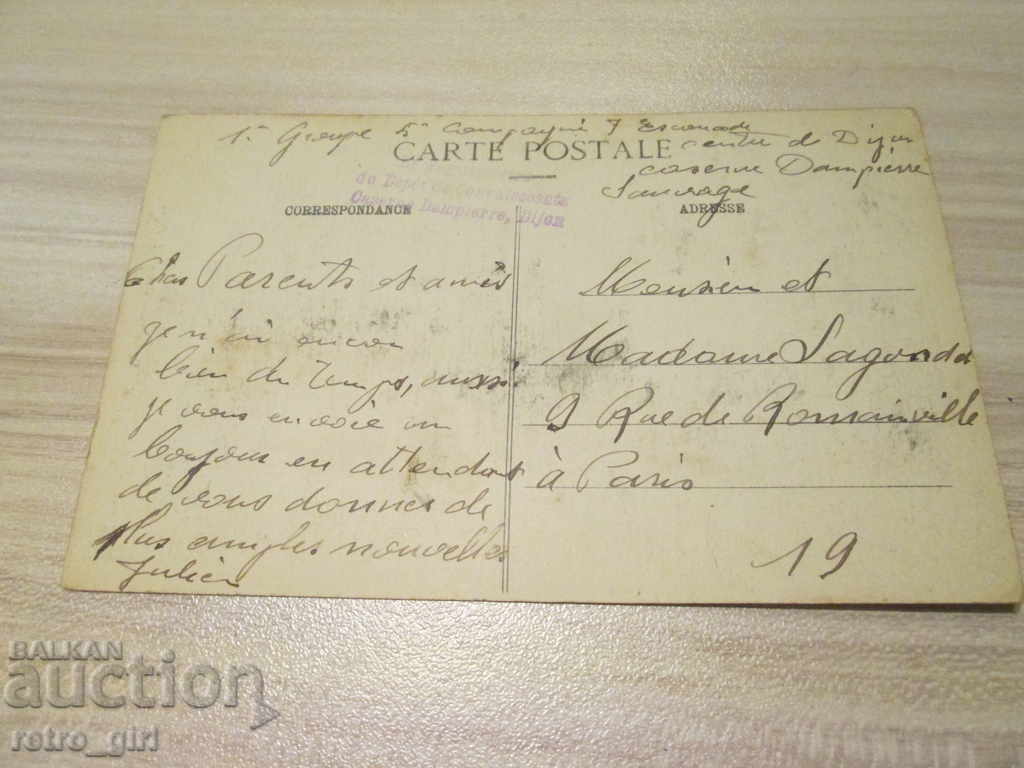 1e Groupe 5e Compagnie 7 Escouade
centre de Dijon
caserne Dampierre
Sauvage
CARTE POSTALE
du Dépôt de Convalescents
Caserne Dampierre, Dijon
CORRESPONDANCE
ADRESSE
Chers Parents et amis
je n'ai encore
bien du temps, aussi
je vous envoie un
bonjour en attendant
de vous donner de
plus amples nouvelles
Julien
Monsieur et
Madame
9 Rue de Romainville
à Paris
19
BALKAN
auction
retro_girl